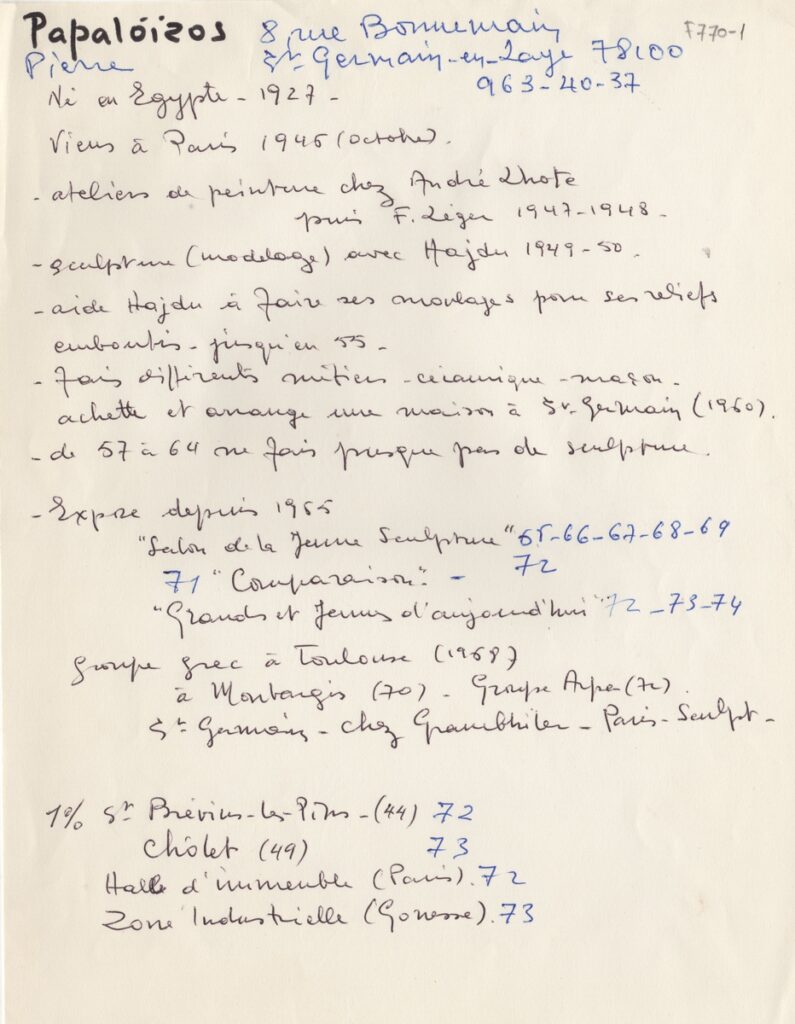 Papalóizos 8 rue Bonnemain F770-1
Pierre St Germain-en-Laye 78100
963-40-37
Né en Egypte - 1927 -
Viens à Paris 1945 (octobre).
- ateliers de peinture chez André Lhote
puis F. Léger 1947-1948 -
- sculpture (modelage) avec Hajdu 1949-50.
- aide Hajdu à faire ses moulages pour ses reliefs
emboutis - jusqu'en 55 -
- Fais différents métiers - céramique - maçon -
achette et arrange une maison à St-Germain (1960).
- de 57 à 64 ne fais presque pas de sculpture.
- Expose depuis 1955
"Salon de la Jeune Sculpture" 65-66-67-68-69
72
71 "Comparaison". -
"Grands et Jeunes d'aujourd'hui" 72-73-74
groupe grec à Toulouse (1968)
à Montargis (70) - Groupe (72)
St Germain - chez - Paris - Sculpt -
1% St Brévins-les-Pins - (44) 72
Chôlet (49) 73
Halle d'immeuble (Paris). 72
Zone Industrielle (Gonesse). 73